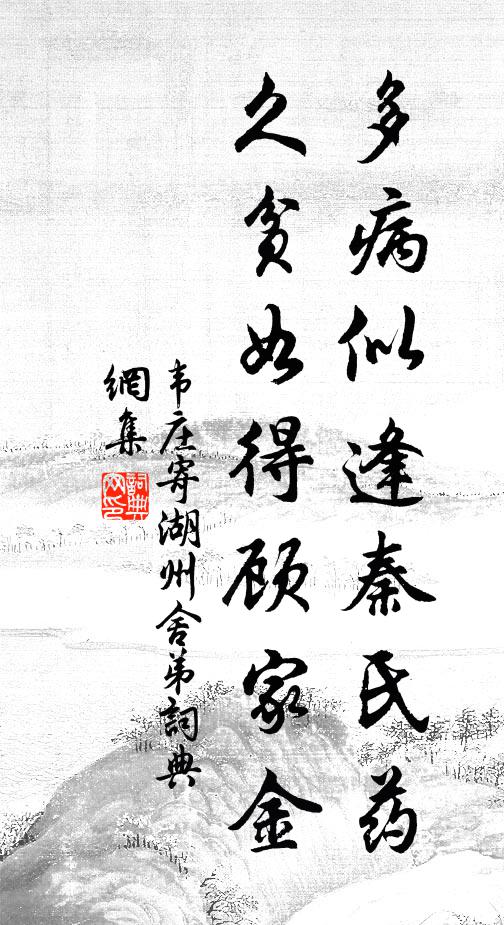 多病似逢秦氏药
久贫如得顾家金
韦庄寄湖州舍弟詞典
網集
詞典
网印